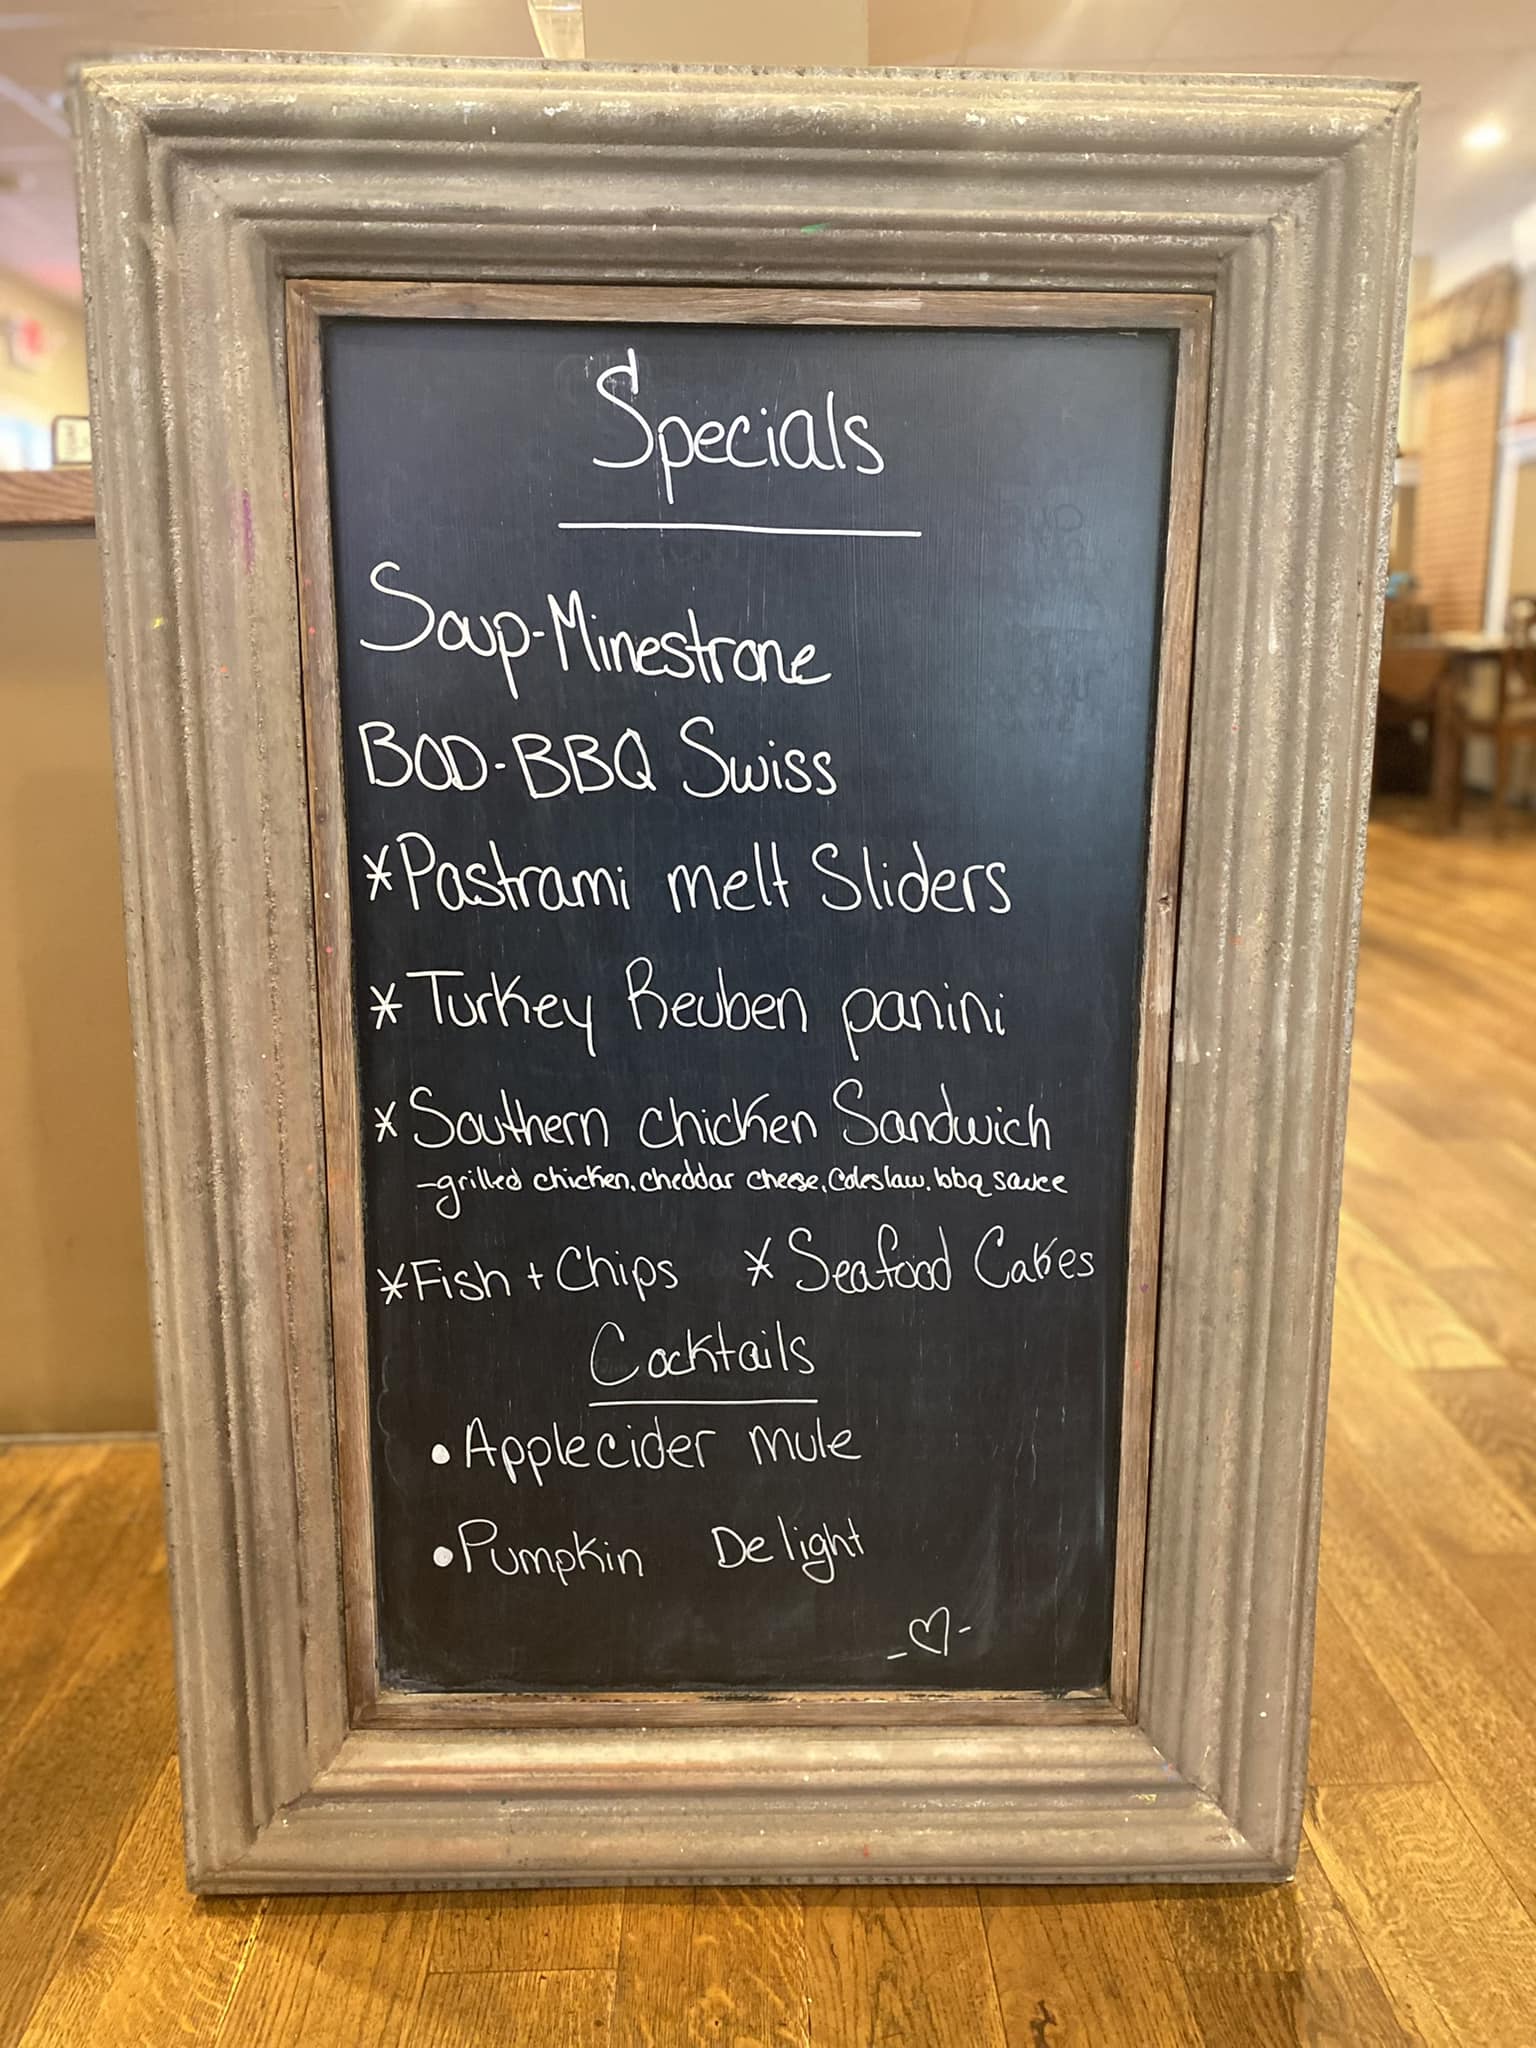 Specials
Soup-Minestrone
BOD-BBQ Swiss
*Pastrami melt Sliders
*Turkey Reuben panini
*Southern chicken Sandwich
-grilled chicken, cheddar cheese, coleslaw, bbq sauce
*Fish + Chips *Seafood Cakes
Cocktails
•Applecider mule
•Pumpkin Delight